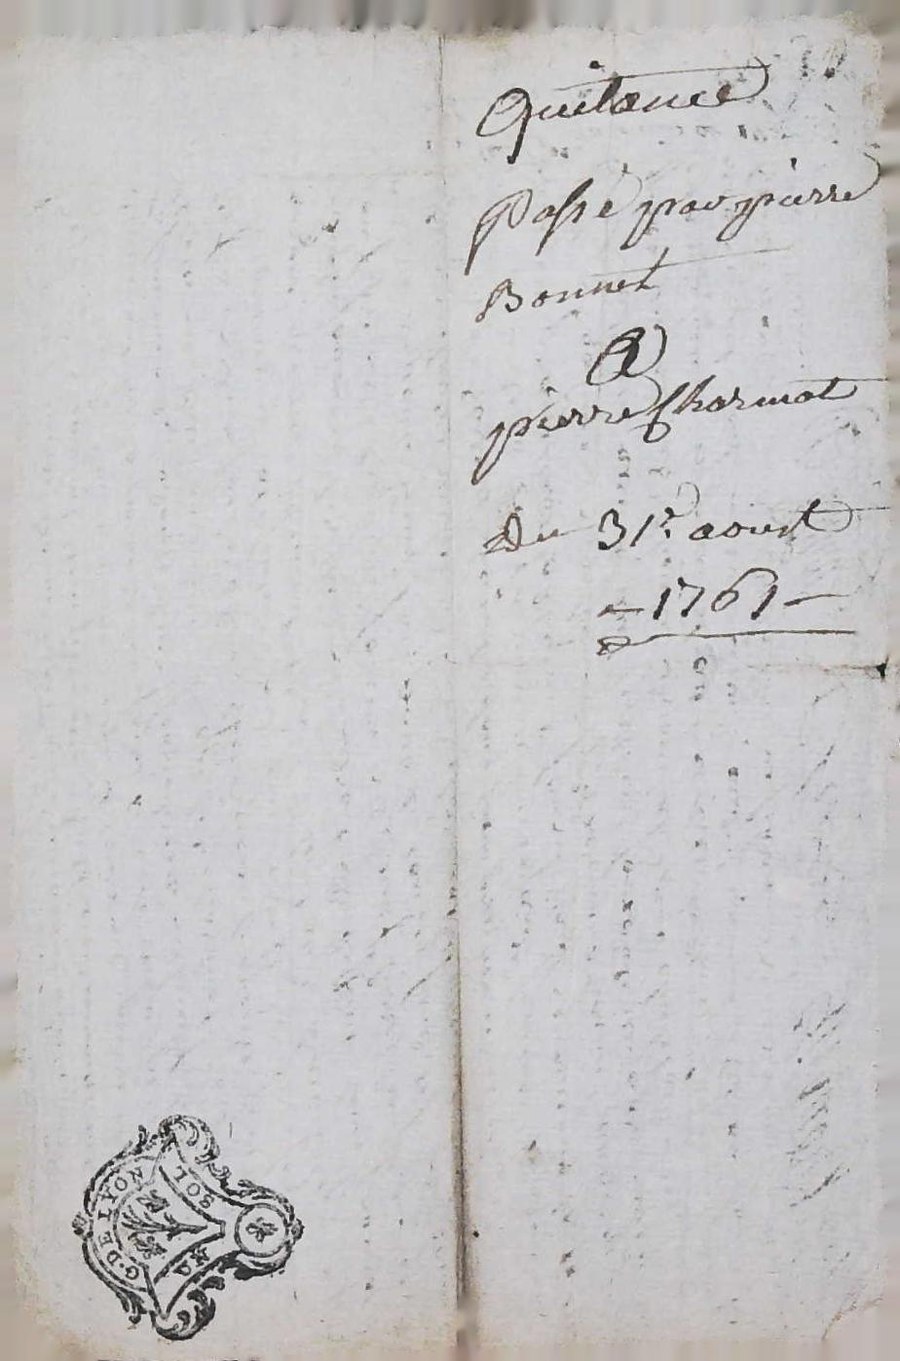 Quitance
Passé par pierre
Bonnet
A
pierre Charmat
Du 31e. aoust
-1761-
G·DE LYON
UN SOL